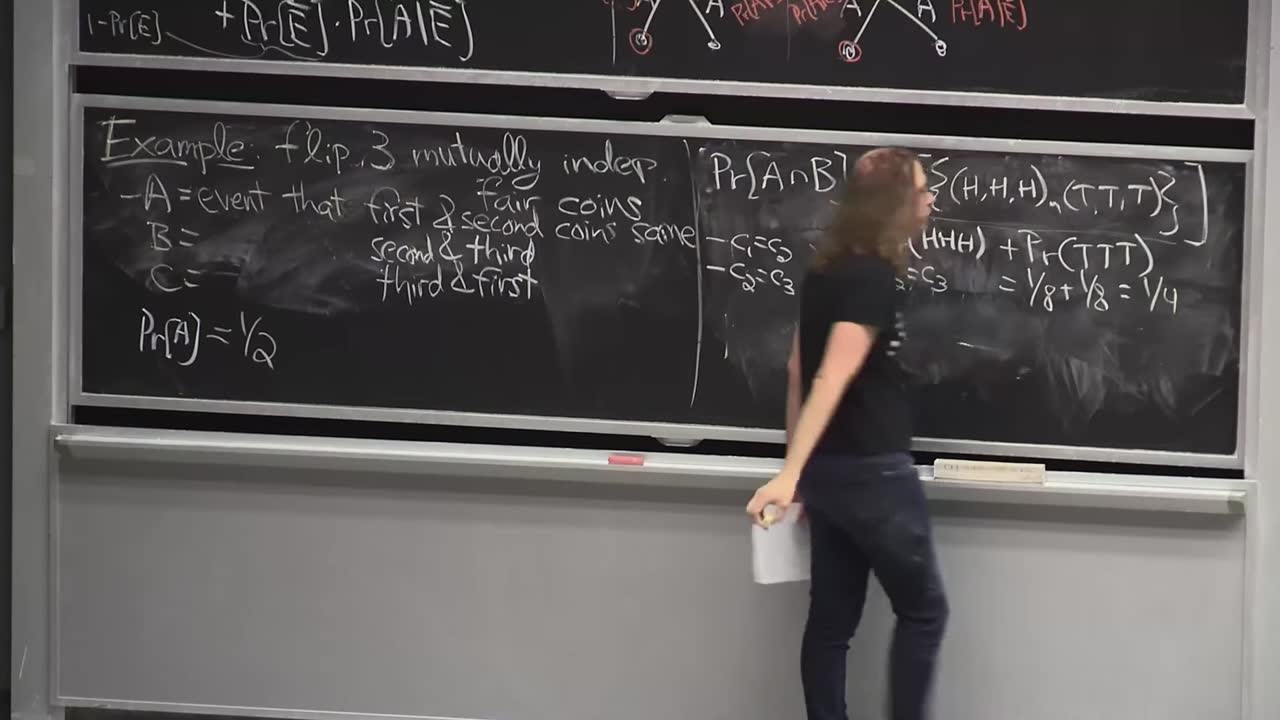 1-Pr[E]
+ Pr[Ē]·Pr[A|Ē]
A
A
Pr[A|Ē]
Example: flip 3 mutually indep.
fair coins
-A = event that first & second coins same
B =
second & third
C =
third & first
Pr[A] = 1/2
Pr[A∩B]
{(H,H,H), (T,T,T)}]
-C₁=C₂
(HHH) + Pr(TTT)
-C₂=C₃
=C₃
= 1/8 + 1/8 = 1/4